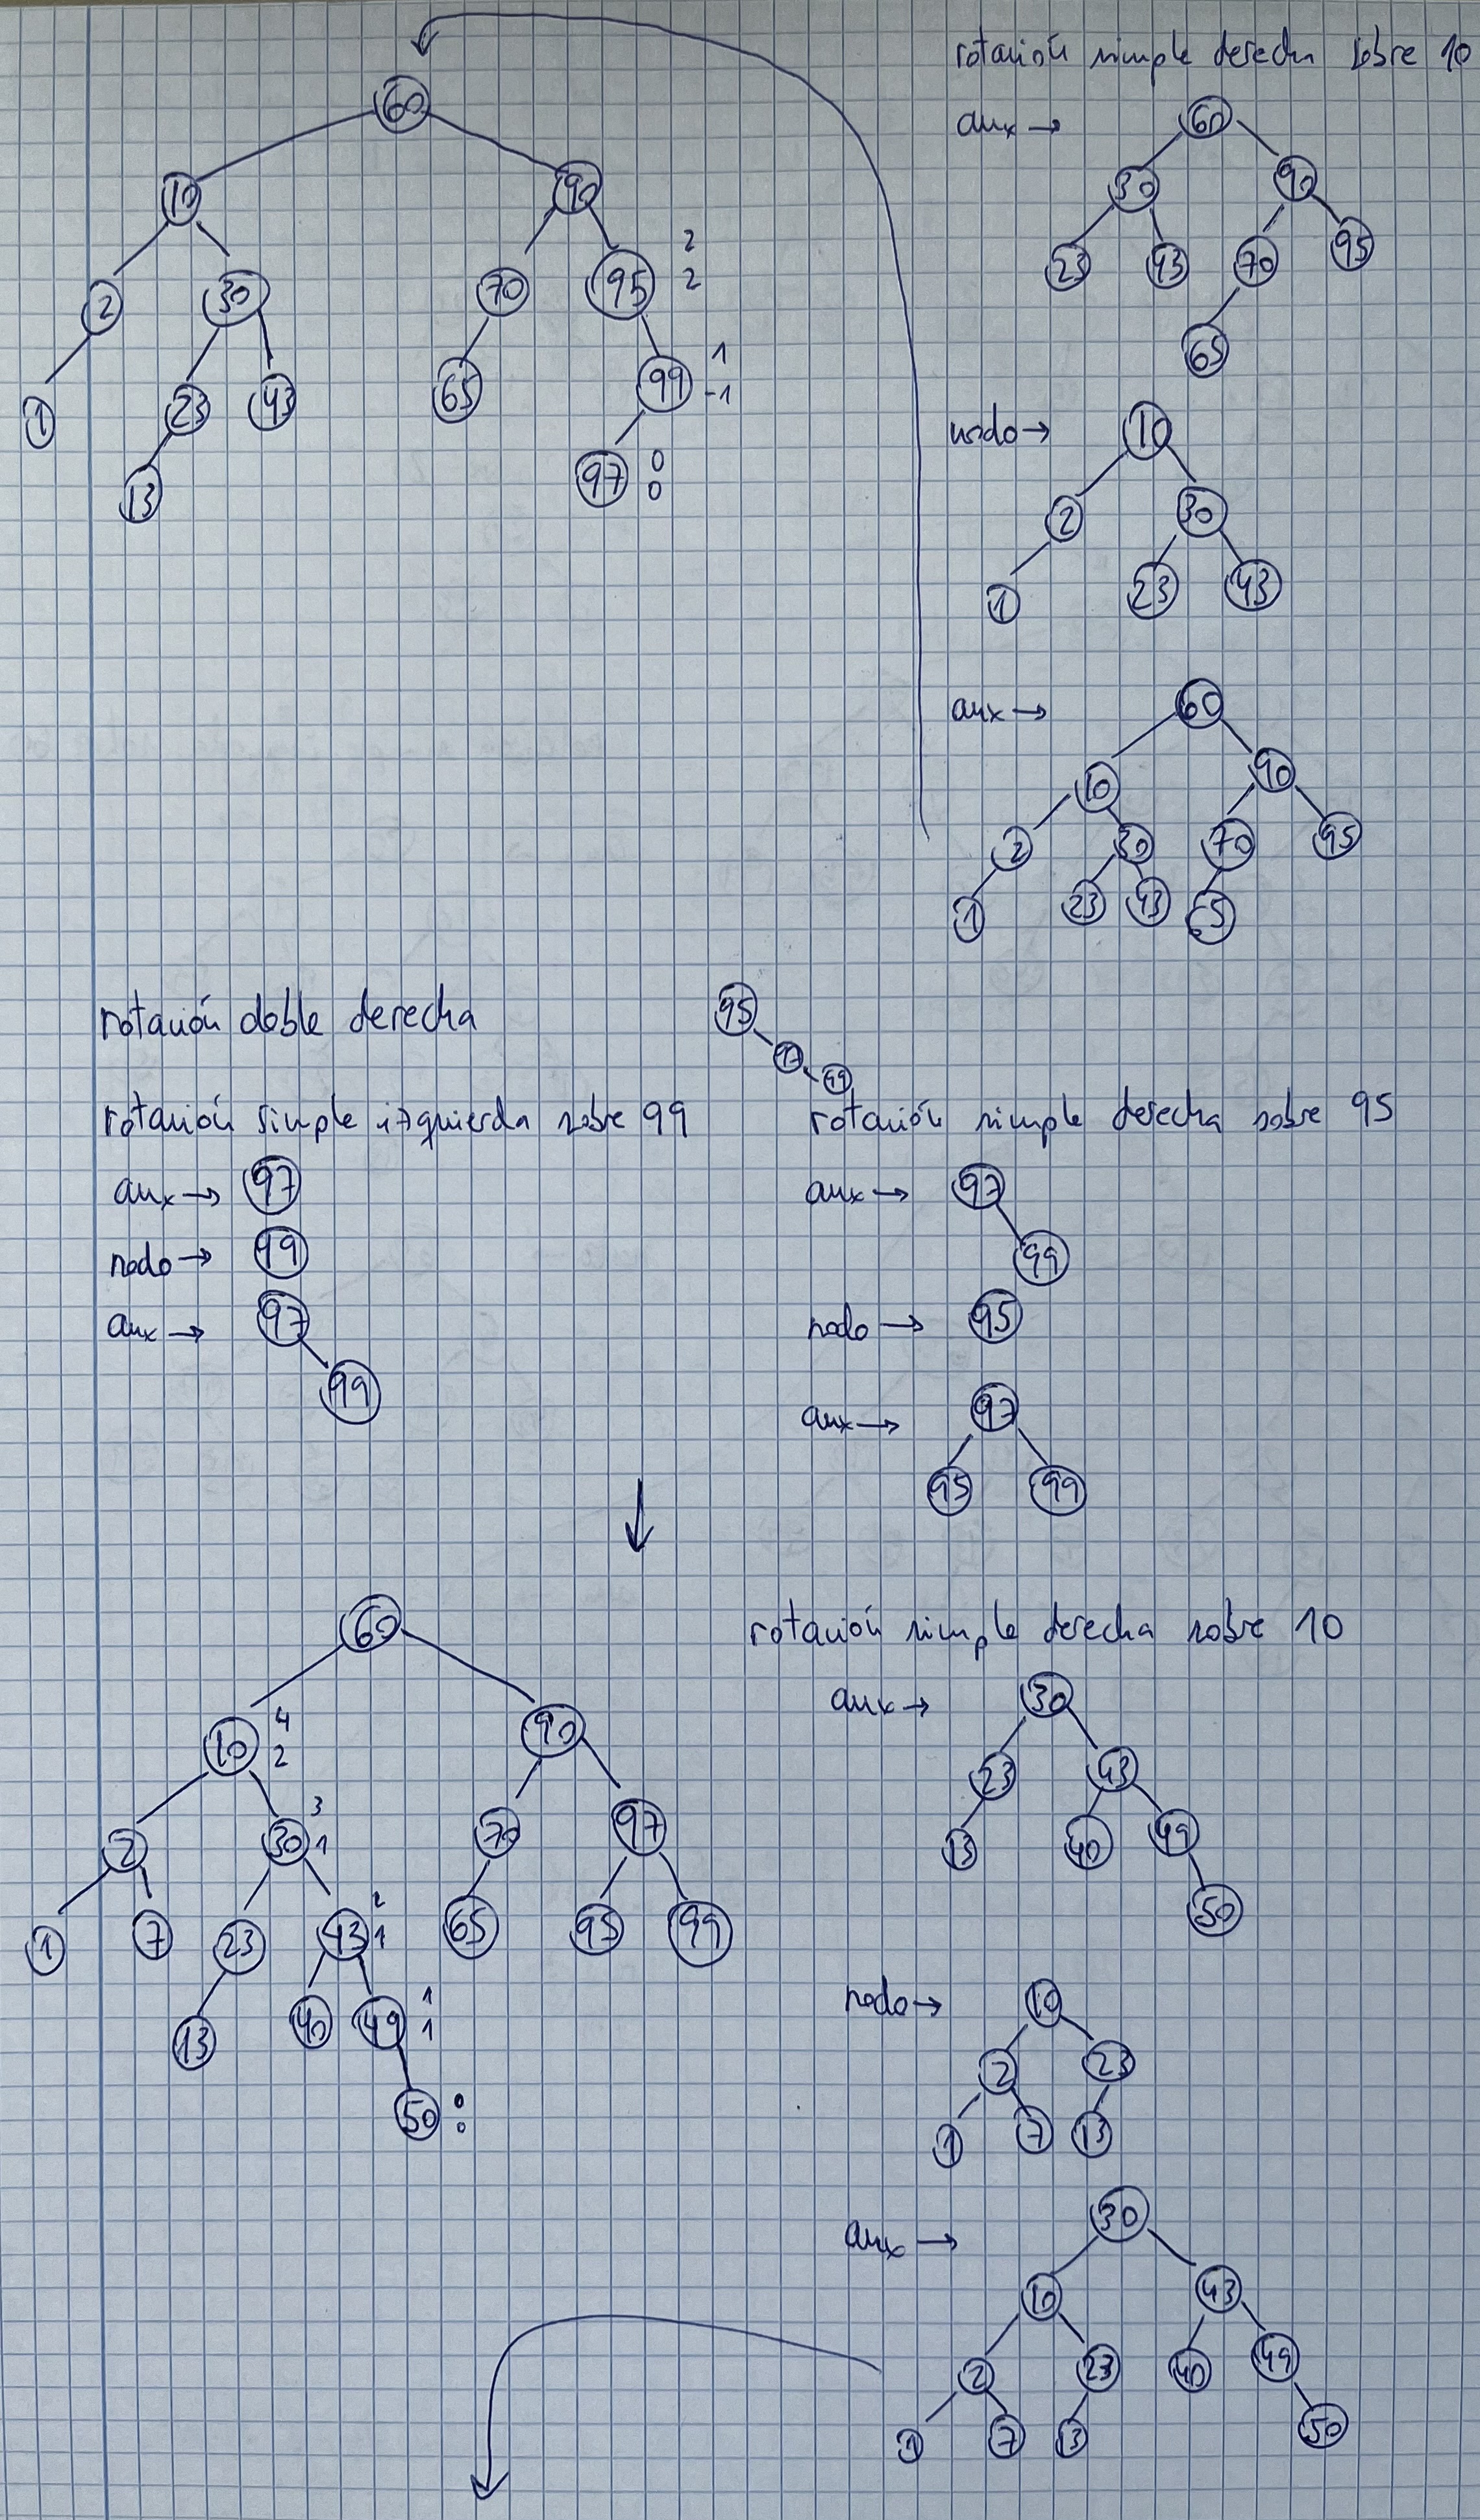 rotación simple derecha sobre 10
60
10 90
2 30 70 95 2 2
1 23 43 65 99 1 -1
13 97 0 0
aux → 60
30 90
23 43 70 95
65
nodo → 10
2 30
1 23 43
aux → 60
10 90
2 30 70 95
1 23 43 65
rotación doble derecha
95
97
99
rotación simple izquierda sobre 99
aux → 97
nodo → 99
aux → 97
99
rotación simple derecha sobre 95
aux → 97
99
nodo → 95
aux → 97
95 99
60
10 4 2 90
2 30 3 1 70 97
1 7 23 43 2 1 65 95 99
13 40 49 1 1
50 0 0
rotación simple derecha sobre 10
aux → 30
23 43
13 40 49
50
nodo → 10
2 23
1 7 13
aux → 30
10 43
2 23 40 49
1 7 13 50